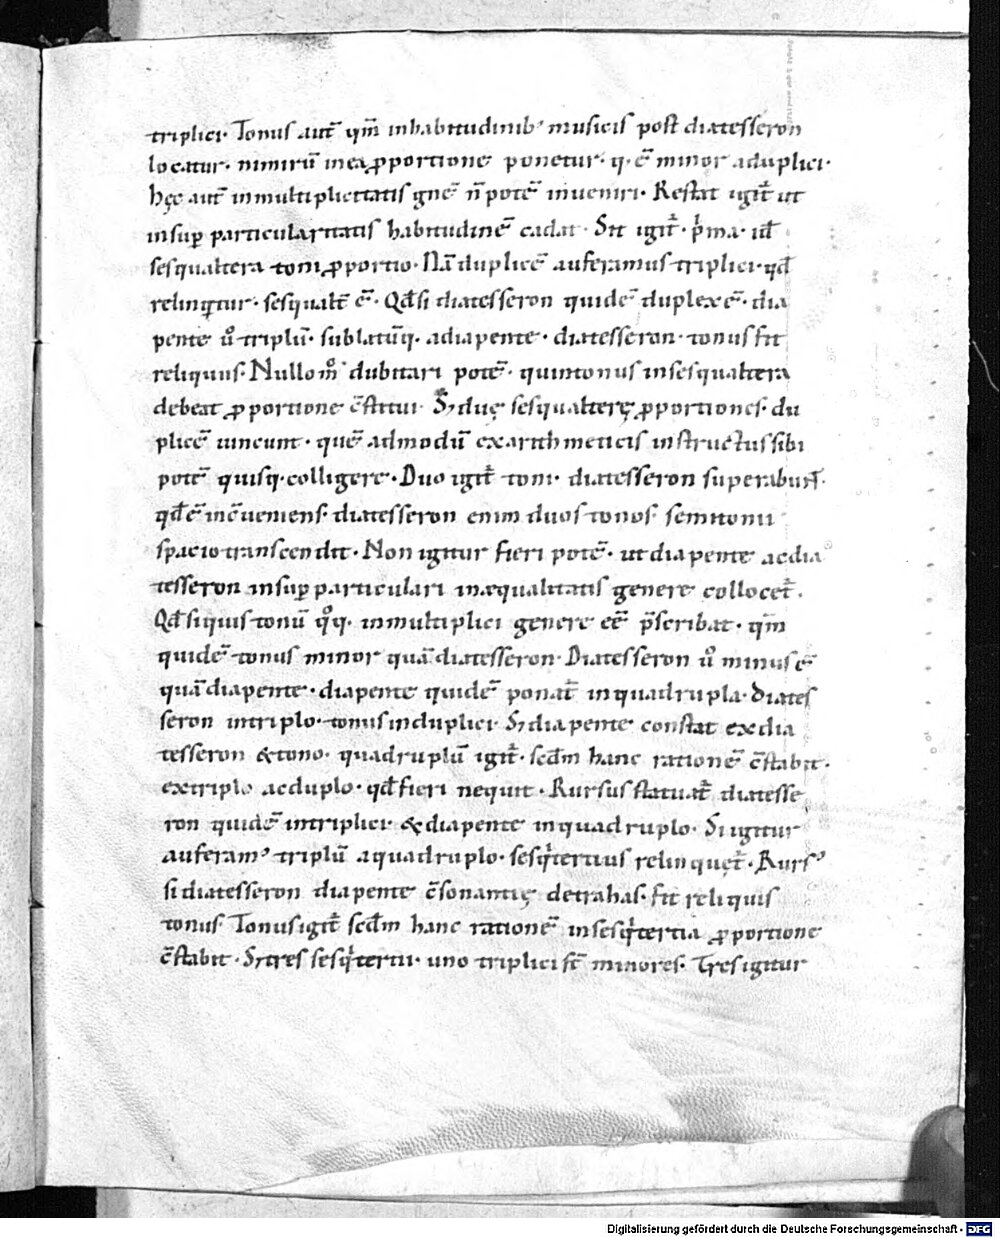 triplici· Tonus aut̄ qm̄ inhabitudinib' musicis post diatesseron
locatur· nimirū inea ꝓportione ponetur· q· ē minor aduplici·
hęc aut̄ inmultiplicitatis gne̅ n̅ pote̅ inueniri· Restat igit̄ ut
insuꝑ particularitatis habitudine̅ cadat· Sit igit̄· p̍ma· ul̄
sesqualtera toni ꝓportio· Nā duplice̅ auferamus triplici· qd̄
relinq̍tur· sesqualt̄ ē· Qd̄ si diatesseron quide̅ duplex ē· dia
pente ů triplū· sublatūq· adiapente· diatesseron· tonus fit
reliquus· Nullo m̊ dubitari pote̅· quintonus insesqualtera
debeat ꝓportione c̅stitui· S; duę sesqualterę ꝓportiones· du
plice̅ uincunt· que̅ admodū exarithmeticis instructus sibi
pote̅ quisq· colligere· Duo igit̄ toni· diatesseron superabunt̄·
qd̄ ē inc̅ueniens· diatesseron enim duos tonos· semitonii
spacio transcendit· Non igitur fieri pote̅· ut diapente acdia
tesseron insuꝑparticulari inæqualitatis genere collocet̄·
Qd̄ siquis tonū q̊q· inmultiplici genere ee̅ p̅scribat· qm̄
quide̅ tonus minor quā diatesseron· Diatesseron ů minus ē
quā diapente· diapente quide̅ ponat̄ inquadrupla· diates
seron intriplo· tonus induplici· S; diapente constat exdia
tesseron & tono· quadruplū igit̄· scd̄m hanc ratione̅ c̅stabit·
extriplo acduplo· qd̄ fieri nequit· Rursus statuat̄ diatesse
ron quide̅ intriplici· & diapente inquadruplo· Si igitur
auferam' triplū aquadruplo· sesq̍tertius relinquet̄· Rurs'
si diatesseron diapente c̅sonantię detrahas· fit reliquis
tonus· Tonus igit̄ scd̄m hanc ratione̅ insesq̍tertia ꝓportione
c̅stabit· S; tres sesq̍tertii· uno triplici st̅ minores· Tres igitur
Digitalisierung gefördert durch die Deutsche Forschungsgemeinschaft - DFG